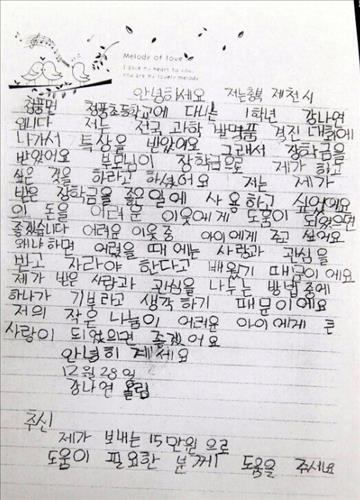 Melody of love
I gave my heart to you.
You are my lovely melody
안녕하세요 저는충북 제천시
청풍면 청풍초등학교에 다니는 1학년 강나연
입니다 저는 전국 과학 발명품 경진 대회에
나가서 특상을 받았어요 그래서 장학금을
받았어요 부모님이 장학금으로 제가 하고
싶은 것을 하라고 하셨어요 저는 제가
받은 장학금을 좋은 일에 사용하고 싶었어요
이 돈을 어려운 이웃에게 도움이 되었으면
좋겠습니다 어려운 이웃중 아이에게 주고 싶어요
왜냐하면 어렸을 때에는 사랑과 관심을
받고 자라야 한다고 배웠기 때문이에요
제가 받은 사랑과 관심을 나누는 방법중에
하나가 기부라고 생각하기 때문이에요
저의 작은 나눔이 어려운 아이에게 큰
사랑이 되었으면 좋겠어요
안녕히 계세요
12월 28일
강나연 올림
주신
제가 보내는 15만원으로
도움이 필요한 분께 도움을 주세요